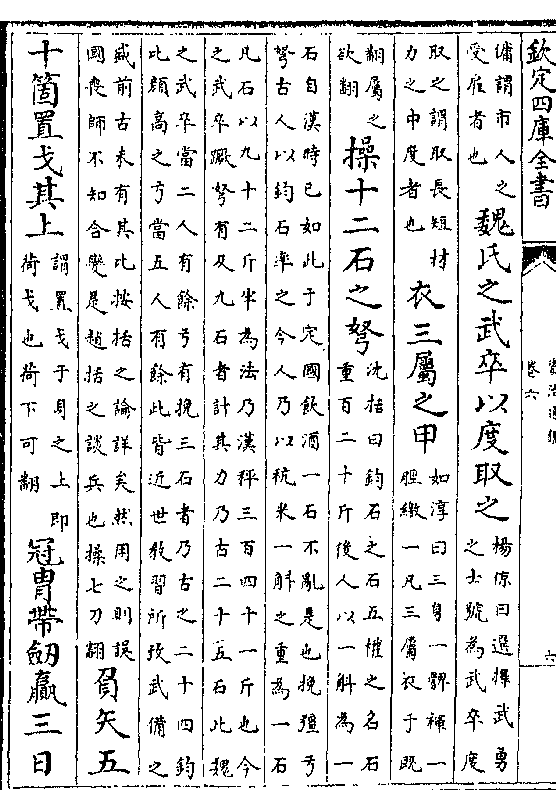 欽定四庫全書
卷六
六
傭謂市人之
受雇者也
魏氏之武卒以度取之
楊倞曰選擇武勇
之士號為武卒度
取之謂取長短材
力之中度者也
衣三屬之甲
如淳曰三身一髀褌一
脛繳一凡三屬衣于既
翻屬之
欲翻
操十二石之弩
沈括曰鈞石之石五權之名石
重百二十斤後人以一斛為一
石自漢時已如此于定國飲酒一石不亂是也挽彊弓
弩古人以鈞石率之今人乃以秔米一斛之重為一石
凡石以九十二斤半為法乃漢秤三百四十一斤也今
之武卒蹶弩有及九石者計其力乃古二十五石此魏
之武卒當二人有餘弓有挽三石者乃古之二十四鈞
此顏高之弓當五人有餘此皆近世教習所致武備之
盛前古未有其比按括之論詳矣然用之則誤
國喪師不知合變是趙括之談兵也操七刀翻
負矢五
十箇置戈其上
謂置戈于身之上即
荷戈也荷下可翻
冠胄帶劒贏三日